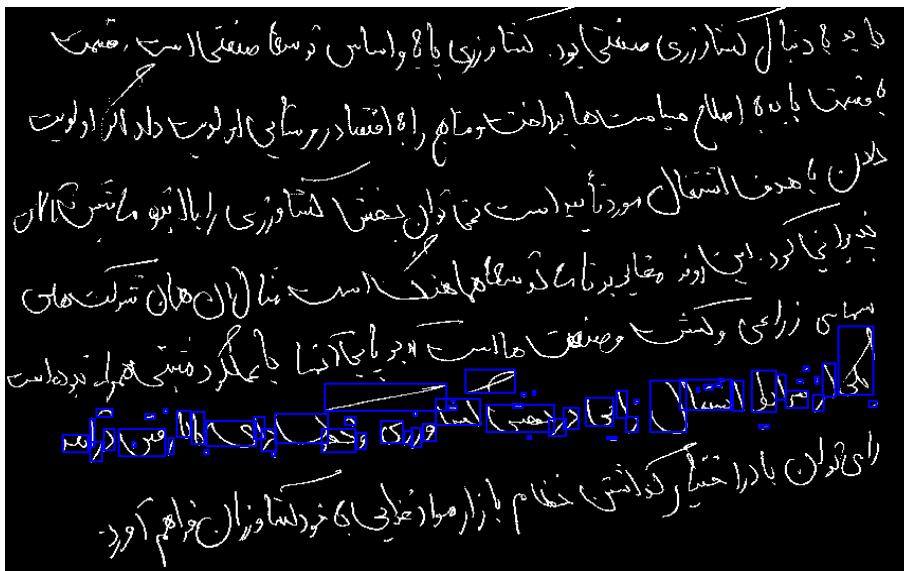 باید به دنبال کشاورزی صنعتی بود. کشاورزی پایه و اساس توسعه صنعتی است. قیمت
به قیمت باید به اصلاح سیاست‌ها پرداخت و منابع را به اقتصاد روستایی اولویت داد اگر اولویت
کلان با هدف اشتغال مورد تأیید است نمی‌توان بخش کشاورزی را با شیوه ماشین آلات
پذیرایی کرد. این روند مغایر برنامه توسعه هماهنگ است مثال آن همان شرکت‌های
سهامی زراعی و کشت و صنعت ها است که برپایی آنها با عملکرد مثبتی همراه نبوده است
یکی از شرایط اشتغال زایی در بخش کشاورزی و خوب برای بالا رفتن درآمد
را می‌توان با در اختیار گذاشتن نظام بازار مواد غذایی به خود کشاورزان فراهم آورد.